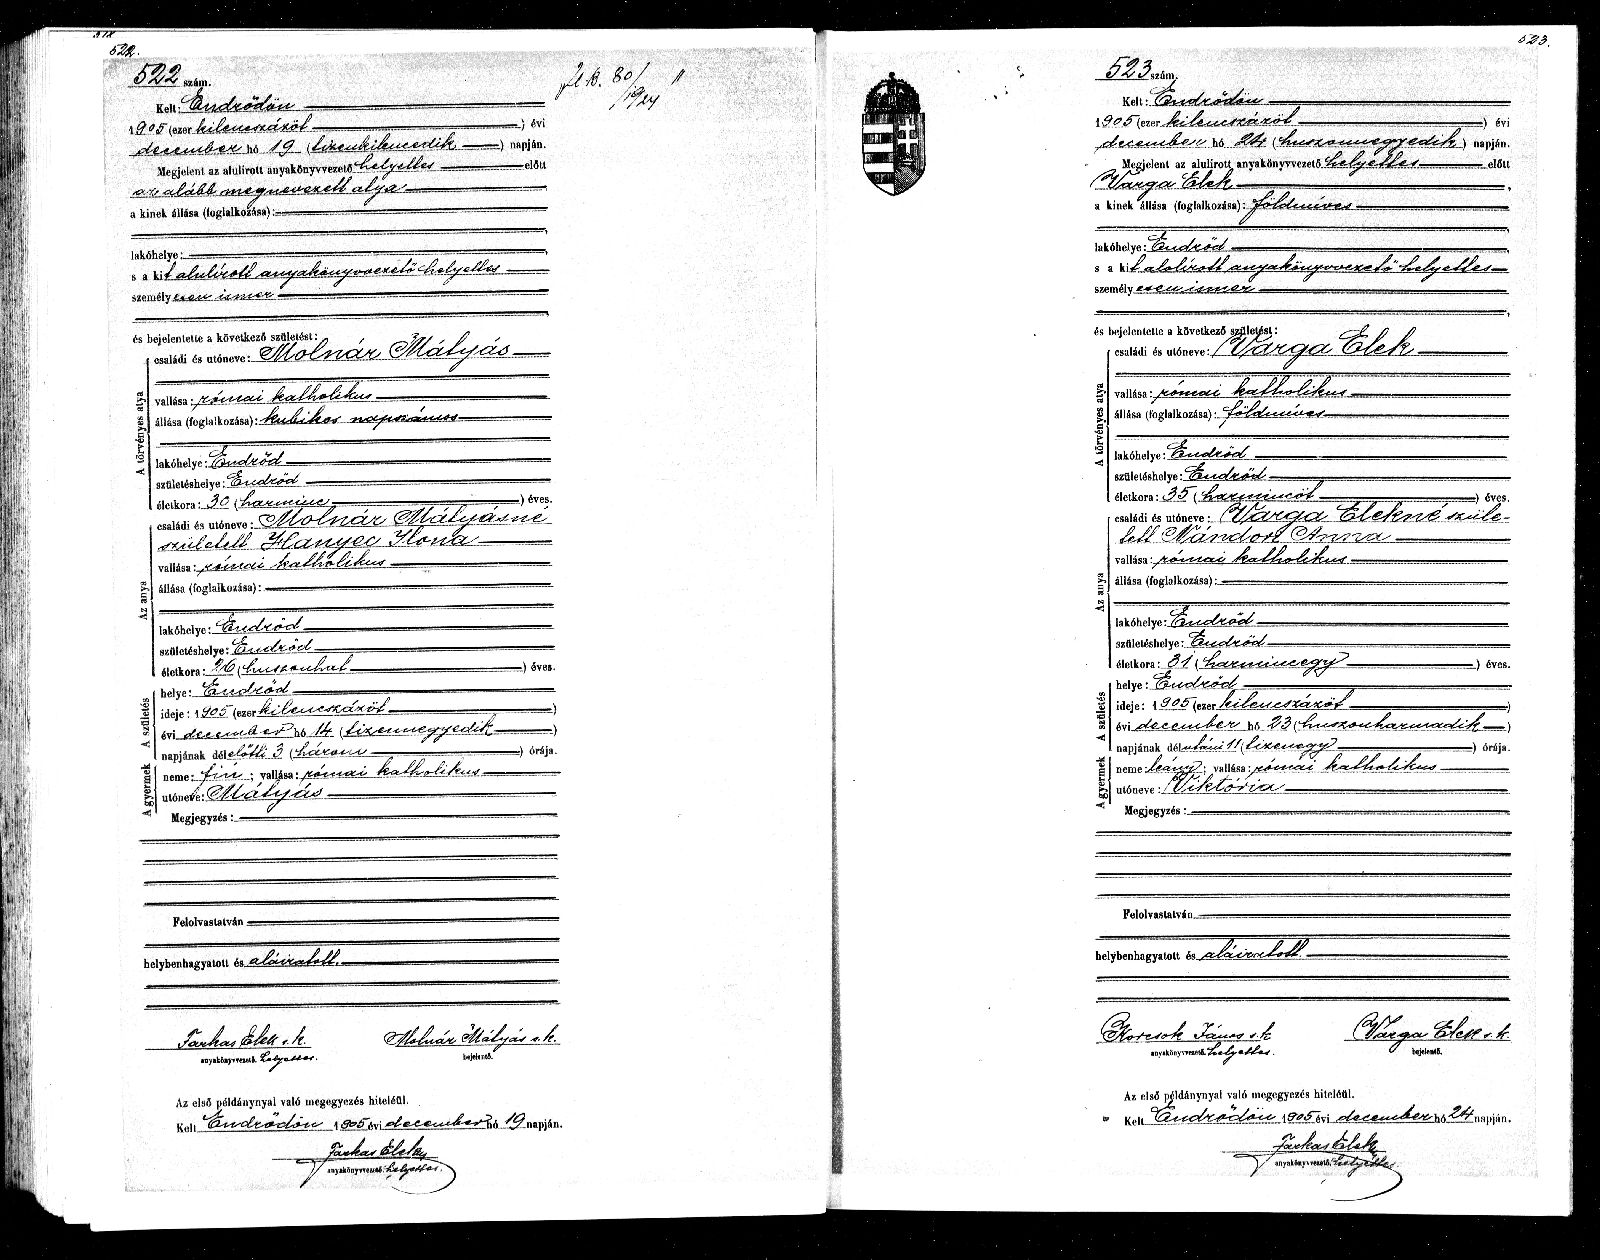 522.
522 szám.
Kelt: Endrődön
1905 (ezer kilenczázöt) évi
december hó 19 (tizenkilencedik) napján.
Megjelent az alulirott anyakönyvvezető helyettes előtt
az alább megnevezett atya
a kinek állása (foglalkozása):
lakóhelye:
s a kit alulírott anyakönyvvezető helyettes
személyesen ismer
és bejelentette a következő születést:
A törvényes atya
családi és utóneve: Molnár Mátyás
vallása: római katholikus
állása (foglalkozása): kubikos napszámos
lakóhelye: Endrőd
születéshelye: Endrőd
életkora: 30 (harminc) éves.
Az anya
családi és utóneve: Molnár Mátyásné
született Hanyec Ilona
vallása: római katholikus
állása (foglalkozása):
lakóhelye: Endrőd
születéshelye: Endrőd
életkora: 26 (huszonhat) éves.
A születés
helye: Endrőd
ideje: 1905 (ezer kilencszázöt)
évi december hó 14 (tizennegyedik)
napjának délelőtti 3 (három) órája.
A gyermek
neme: fiú; vallása: római katholikus
utóneve: Mátyás
Megjegyzés:
Felolvastatván
helybenhagyatott és aláiratott.
Farkas Elek s.k. Molnár Mátyás s.k.
anyakönyvvezető helyettes. bejelentő.
Az első példánynyal való megegyezés hiteléül.
Kelt Endrődön 1905 évi december hó 19 napján.
Farkas Elek
anyakönyvvezető helyettes.
80/1924
523.
523 szám.
Kelt: Endrődön
1905 (ezer kilencszázöt) évi
december hó 24 (huszonnegyedik) napján.
Megjelent az alulirott anyakönyvvezető helyettes előtt
Varga Elek
a kinek állása (foglalkozása): földmíves
lakóhelye: Endrőd
s a kit alolírott anyakönyvvezető helyettes
személyesen ismer
és bejelentette a következő születést:
A törvényes atya
családi és utóneve: Varga Elek
vallása: római katholikus
állása (foglalkozása): földmíves
lakóhelye: Endrőd
születéshelye: Endrőd
életkora: 35 (harmincöt) éves.
Az anya
családi és utóneve: Varga Elekné szüle-
tett Nándori Anna
vallása: római katholikus
állása (foglalkozása):
lakóhelye: Endrőd
születéshelye: Endrőd
életkora: 31 (harmincegy) éves.
A születés
helye: Endrőd
ideje: 1905 (ezer kilencszázöt)
évi december hó 23 (huszonharmadik)
napjának délutáni 11 (tizenegy) órája.
A gyermek
neme: leány; vallása: római katholikus
utóneve: Viktória
Megjegyzés:
Felolvastatván
helybenhagyatott és aláiratott.
Korcsok János s.k. Varga Elek s.k.
anyakönyvvezető helyettes. bejelentő.
Az első példánynyal való megegyezés hiteléül.
Kelt Endrődön 1905 évi december hó 24 napján.
Farkas Elek
anyakönyvvezető helyettes.